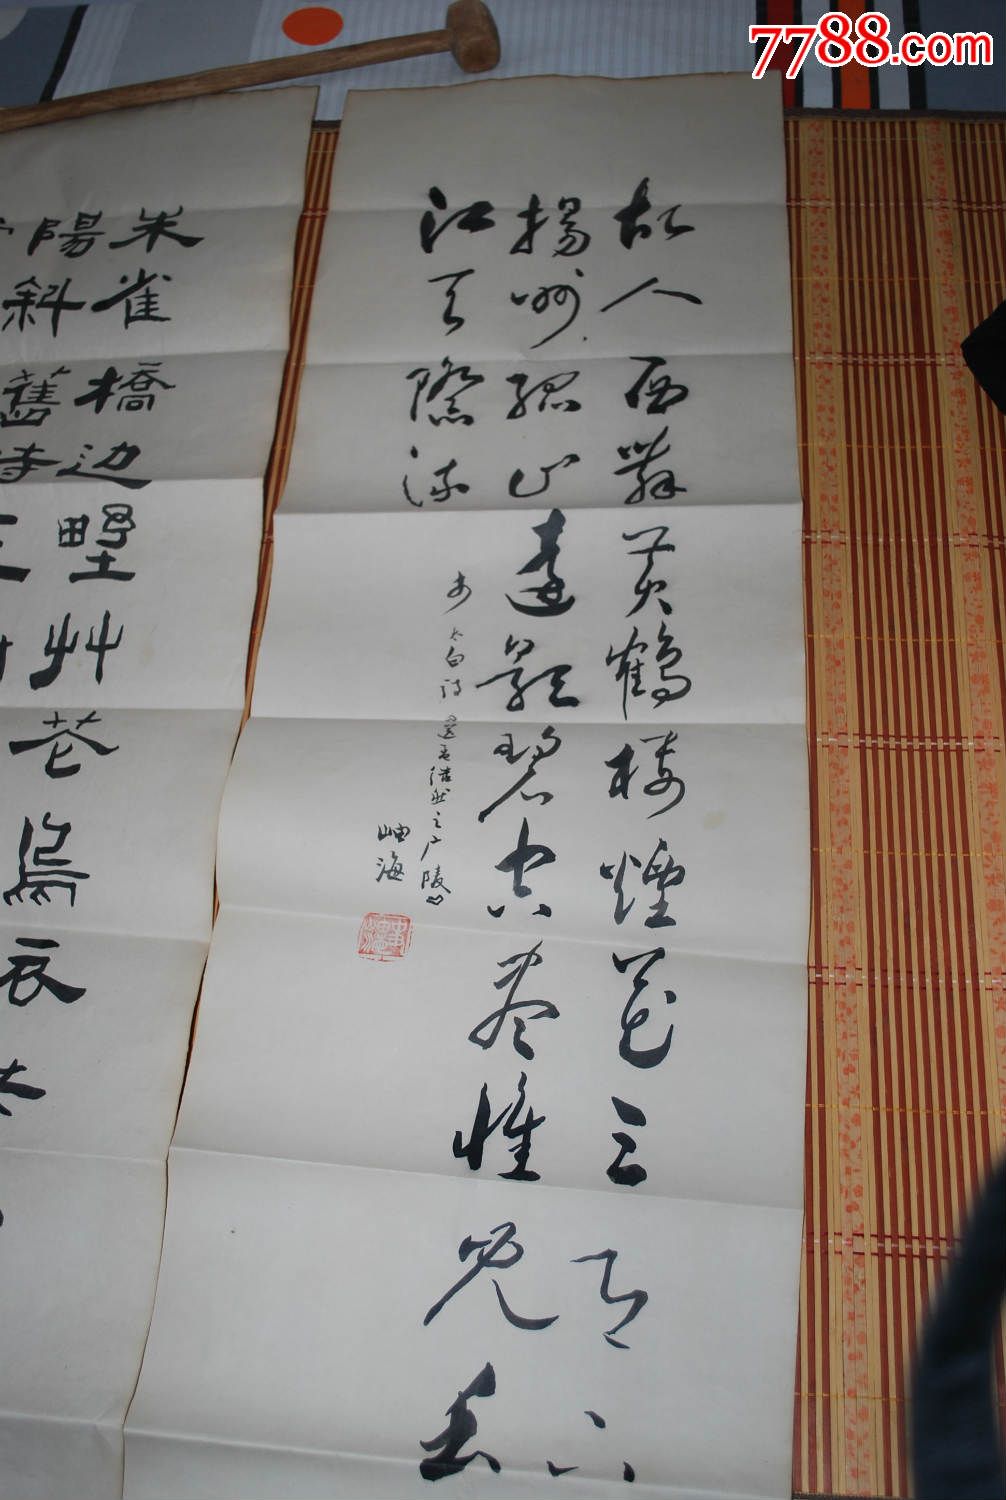 故人西辭黄鶴楼煙花三月下
揚州孤帆遠影碧空尽惟見长
江天際流
李太白诗送孟浩然之广陵
岫海
朱雀橋边野艸花烏衣巷
陽斜舊時王
7788.com